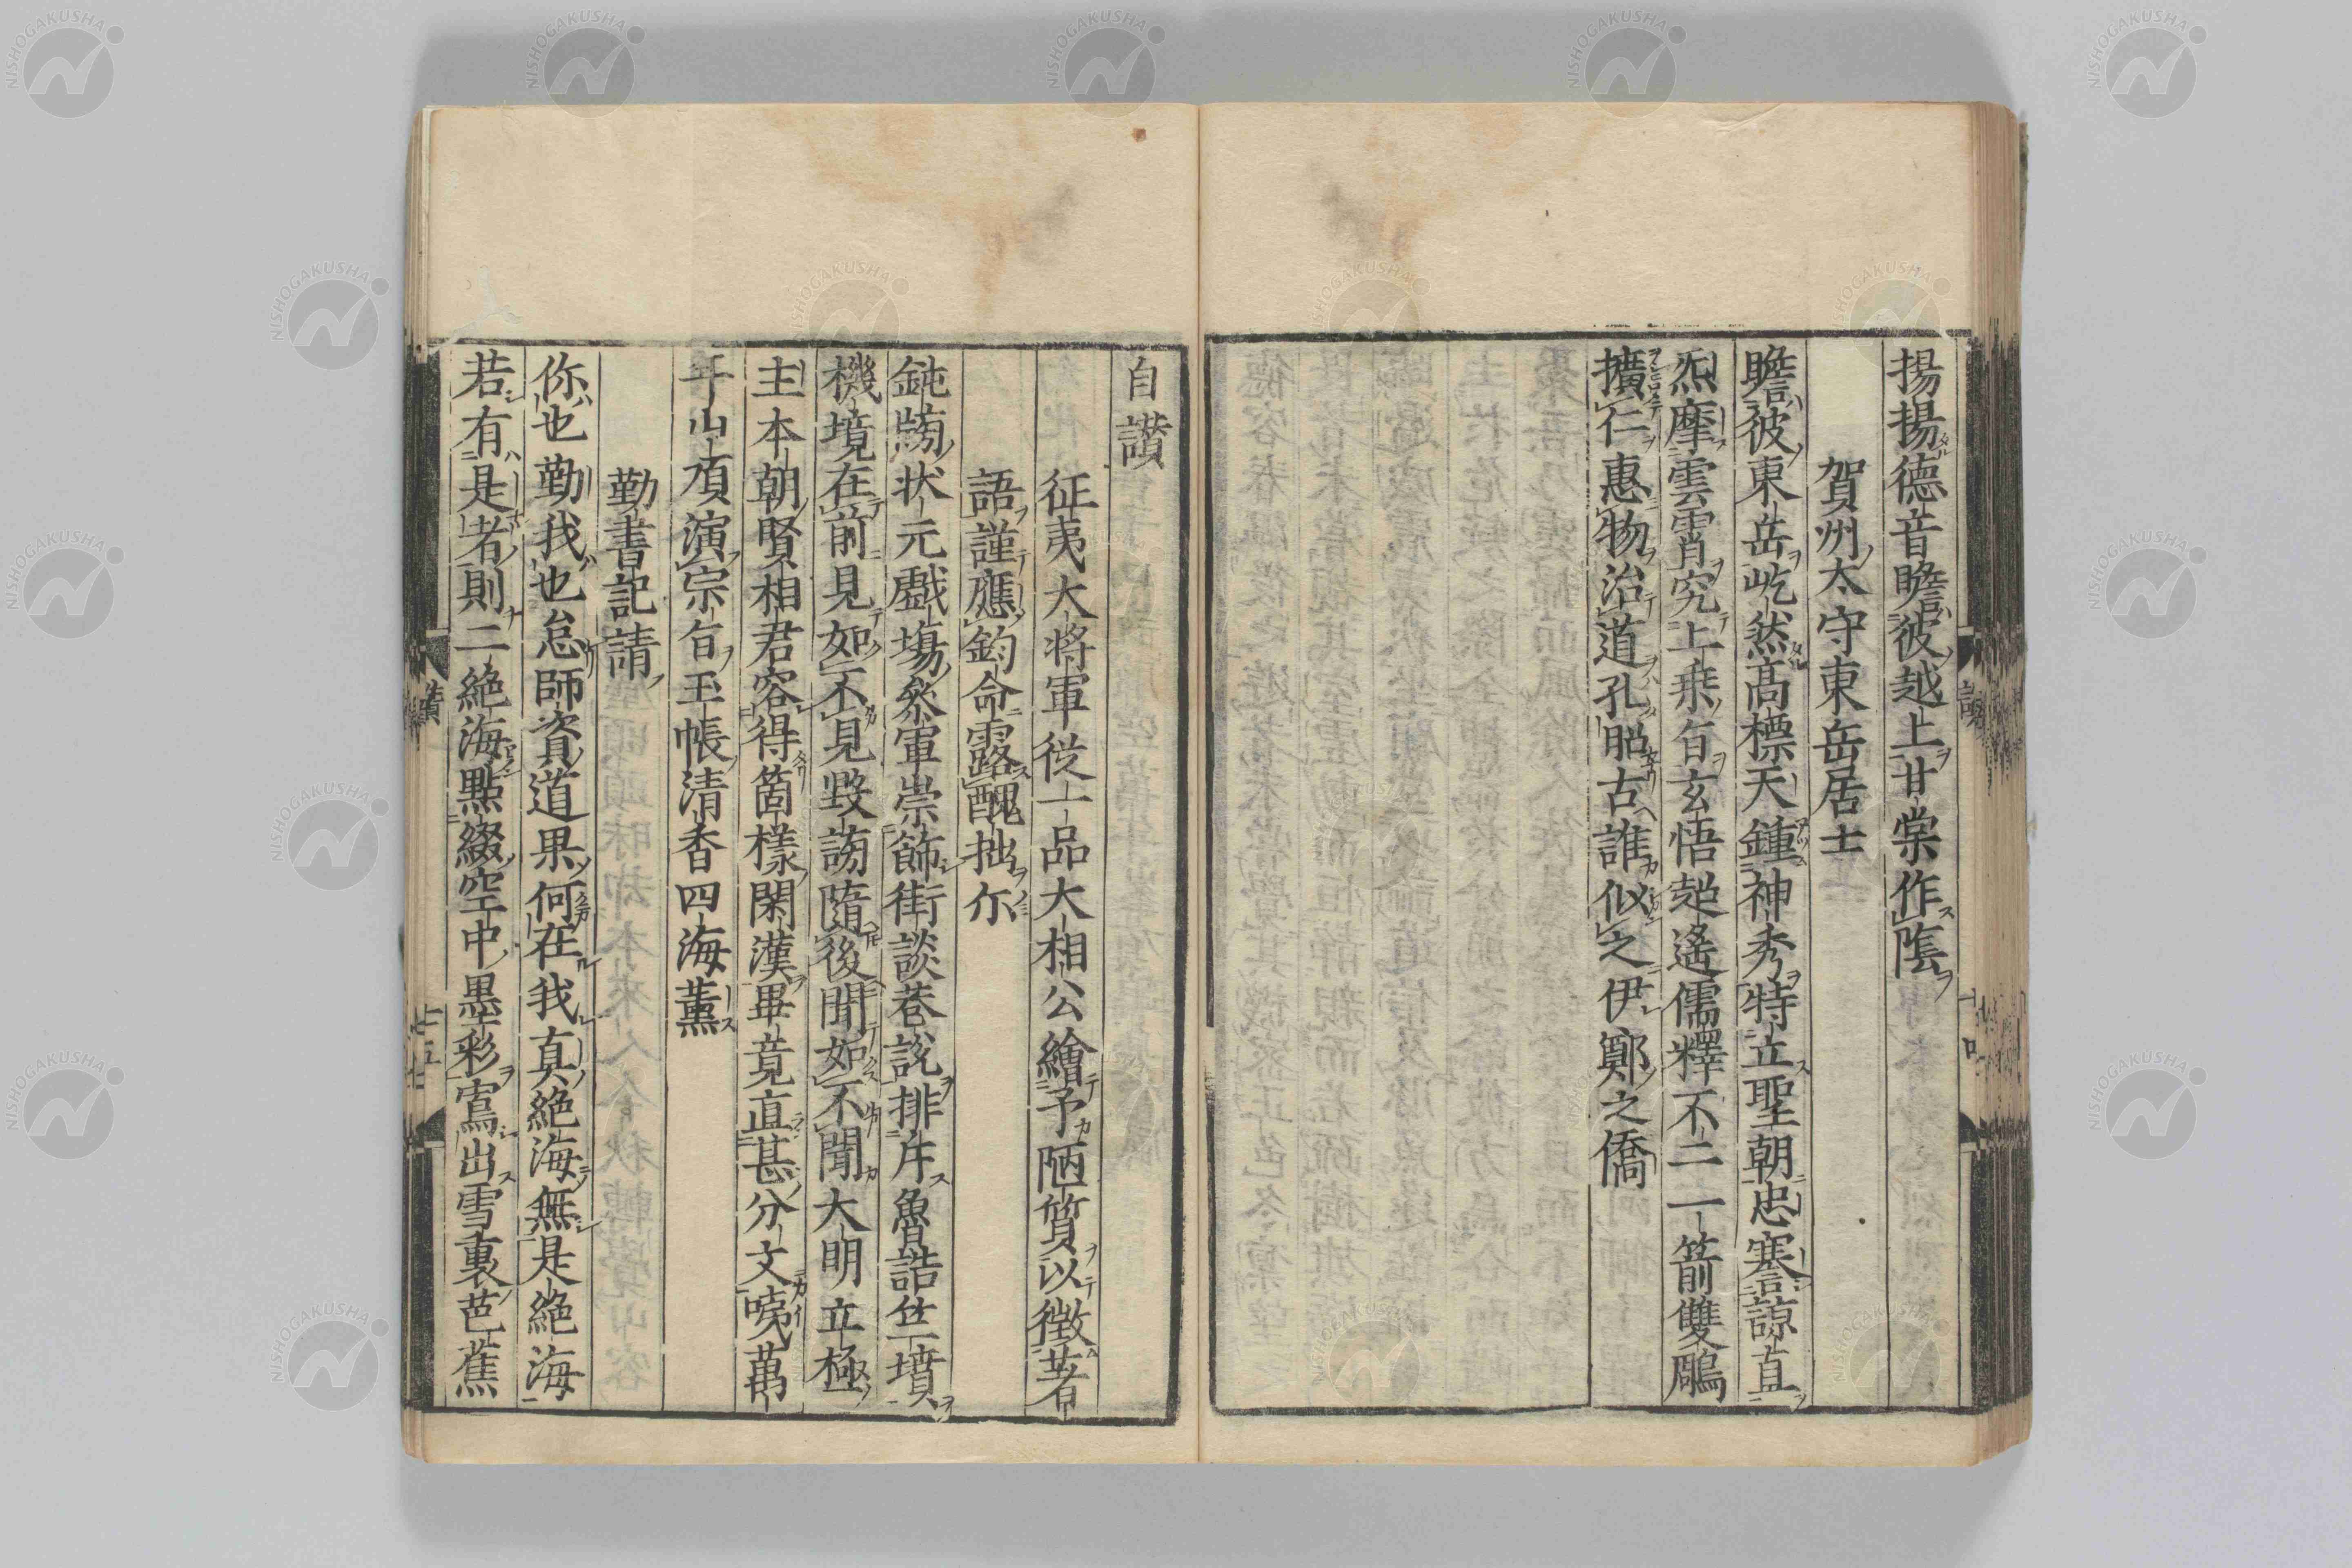 揚揚德音瞻彼越上甘棠作蔭
賀州太守東岳居士
瞻彼東岳屹然高標天鍾神秀特立聖朝忠謇諒直
烝摩雲霄究上乗旨玄悟超遙儒釋不二一箭雙鵰
擴仁惠物治道孔昭古誰似之伊鄭之僑
自讃
征夷大将軍従一品大相公繪予陋質以徴著
語謹應鈞命露醜拙尓
鈍牓状元戲場叅軍崇飾街談巷説排斥魯誥竺墳
機境在前見如不見毀謗随後聞如不聞大明立極
主本朝賢相君容得箇様閑漢畢竟直甚分文咦萬
年山頂演宗旨玉帳清香四海薫
勤書記請
你也勤我也怠師資道果何在我真絶海無是絶海
若有是者則二絶海點綴空中墨彩寫出雪裏芭蕉
NISHOGAKUSHA